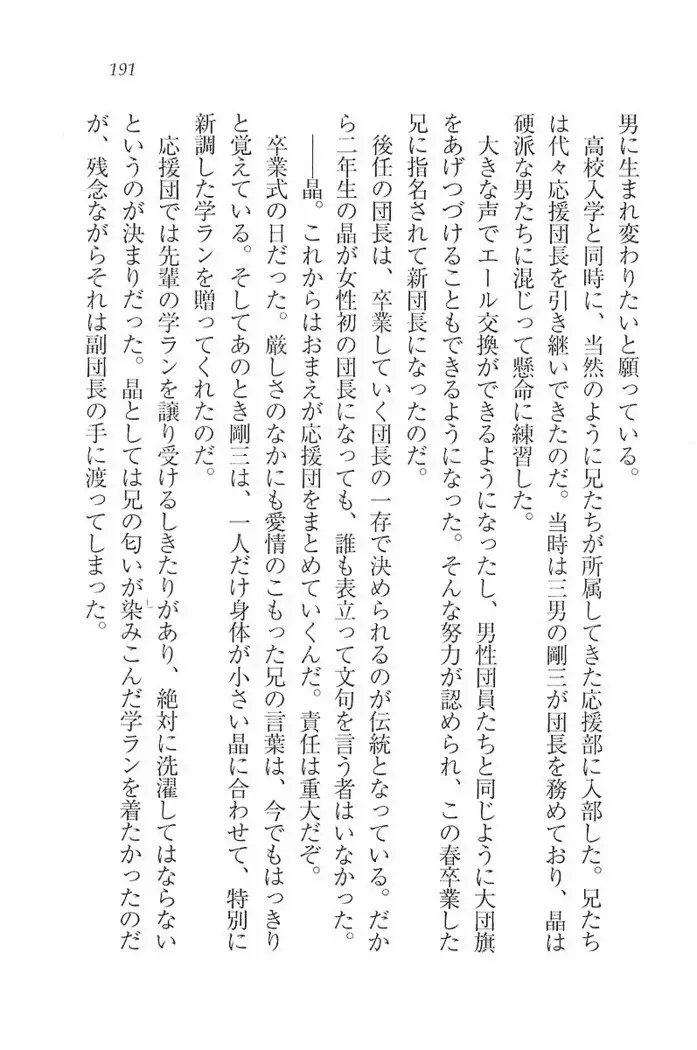 191
男に生まれ変わりたいと願っている。
高校入学と同時に、当然のように兄たちが所属してきた応援部に入部した。兄たち
は代々応援団長を引き継いできたのだ。当時は三男の剛三が団長を務めており、晶は
硬派な男たちに混じって懸命に練習した。
大きな声でエール交換ができるようになったし、男性団員たちと同じように大団旗
をあげつづけることもできるようになった。そんな努力が認められ、この春卒業した
兄に指名されて新団長になったのだ。
後任の団長は、卒業していく団長の一存で決められるのが伝統となっている。だか
ら二年生の晶が女性初の団長になっても、誰も表立って文句を言う者はいなかった。
――晶。これからはおまえが応援団をまとめていくんだ。責任は重大だぞ。
卒業式の日だった。厳しさのなかにも愛情のこもった兄の言葉は、今でもはっきり
と覚えている。そしてあのとき剛三は、一人だけ身体が小さい晶に合わせて、特別に
新調した学ランを贈ってくれたのだ。
応援団では先輩の学ランを譲り受けるしきたりがあり、絶対に洗濯してはならない
というのが決まりだった。晶としては兄の匂いが染みこんだ学ランを着たかったのだ
が、残念ながらそれは副団長の手に渡ってしまった。